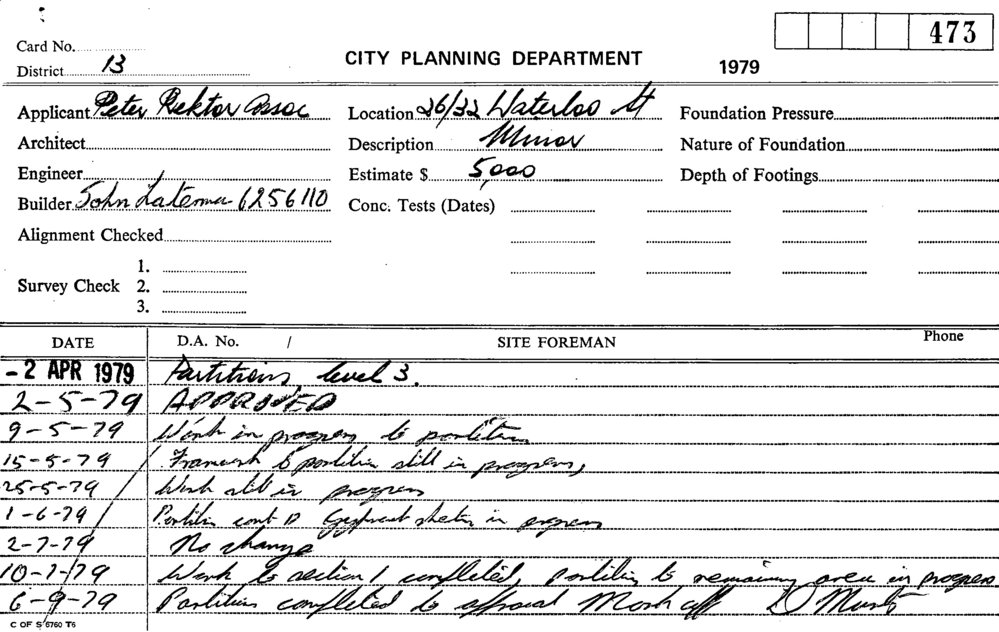 473
Card No.
CITY PLANNING DEPARTMENT
1979
District 13
Applicant Peter Rektor Assoc
Location 26/32 Waterloo St
Foundation Pressure
Architect
Description Minor
Nature of Foundation
Engineer
Estimate $ 5,000
Depth of Footings
Builder John 6256110
Conc. Tests (Dates)
Alignment Checked
1.
Survey Check 2.
3.
DATE D.A. No. / SITE FOREMAN Phone
- 2 APR 1979 Partitions, level 3.
2-5-79 APPROVED
9-5-79 Work in progress to partitions
15-5-79 Framework to partitions still in progress,
25-5-79 Work still in progress
1-6-79 Partitions in progress
2-7-79 No change
10-7-79 Work to section 1 completed, partitions to remaining area in progress
6-9-79 Partitions completed to approval Mark off
C OF S 6760 T6